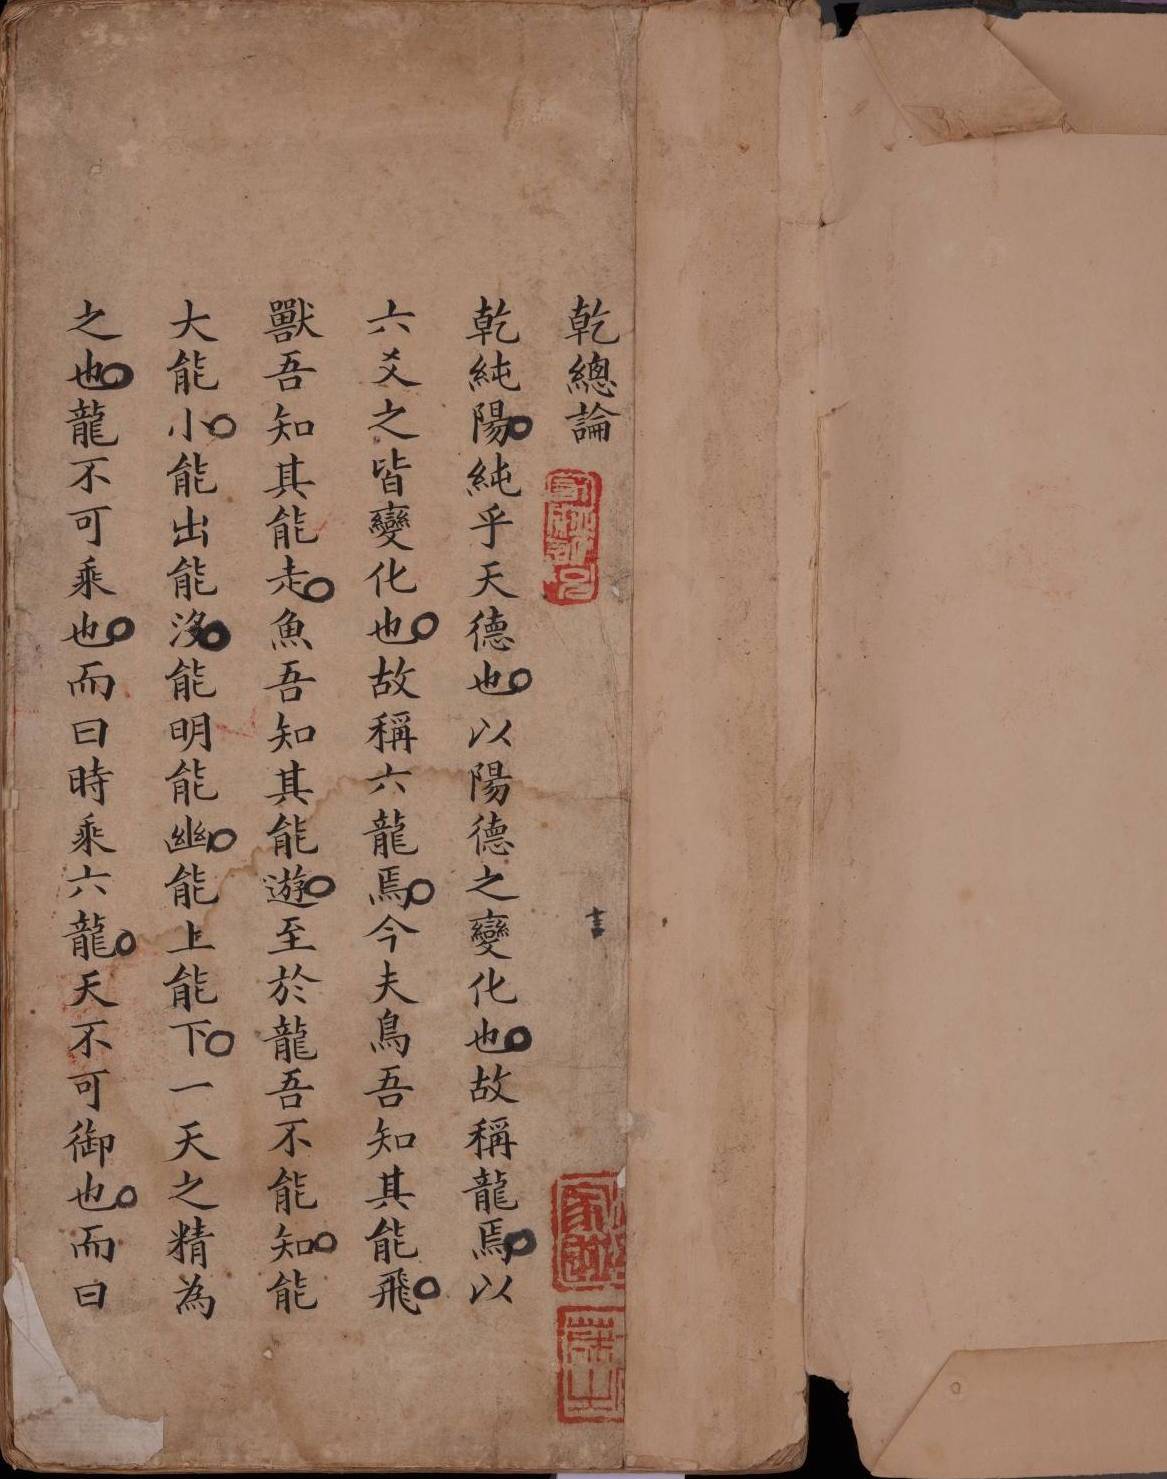 乾總論
乾純陽純乎天德也以陽德之變化也故稱龍焉以
六爻之皆變化也故稱六龍焉今夫鳥吾知其能飛
獸吾知其能走魚吾知其能遊至於龍吾不能知能
大能小能出能沒能明能幽能上能下一天之精為
之也龍不可乘也而曰時乘六龍天不可御也而曰